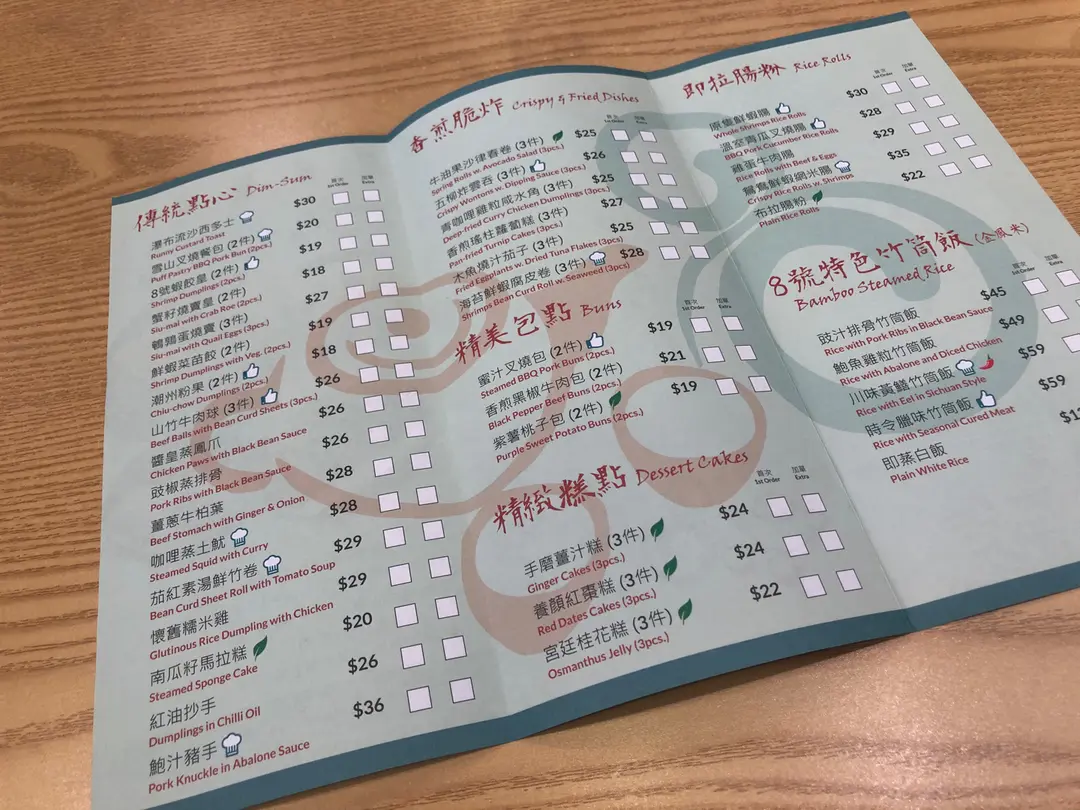 傳統點心 Dim-Sum
首次 加單
1st Order Extra
瀑布流沙西多士 $30
Runny Custard Toast
雪山叉燒餐包 (2件) $20
Puff Pastry BBQ Pork Bun (2pcs.)
8號蝦餃皇 (2件) $19
Shrimp Dumplings (2pcs.)
蟹籽燒賣皇 (2件) $18
Siu-mai with Crab Roe (2pcs.)
鵪鶉蛋燒賣 (3件) $27
Siu-mai with Quail Eggs (3pcs.)
鮮蝦菜苗餃 (2件) $19
Shrimp Dumplings with Veg. (2pcs.)
潮州粉果 (2件) $18
Chiu-chow Dumplings (2pcs.)
山竹牛肉球 (3件) $26
Beef Balls with Bean Curd Sheets (3pcs.)
醬皇蒸鳳爪 $26
Chicken Paws with Black Bean Sauce
豉椒蒸排骨 $26
Pork Ribs with Black Bean Sauce
薑蔥牛柏葉 $28
Beef Stomach with Ginger & Onion
咖哩蒸土魷 $28
Steamed Squid with Curry
茄紅素湯鮮竹卷 $29
Bean Curd Sheet Roll with Tomato Soup
懷舊糯米雞 $29
Glutinous Rice Dumpling with Chicken
南瓜籽馬拉糕 $20
Steamed Sponge Cake
紅油抄手 $26
Dumplings in Chilli Oil
鮑汁豬手 $36
Pork Knuckle in Abalone Sauce
香煎脆炸 Crispy & Fried Dishes
首次 加單
1st Order Extra
牛油果沙律春卷 (3件) $25
Spring Rolls w. Avocado Salad (3pcs.)
五柳炸雲吞 (3件) $26
Crispy Wontons w. Dipping Sauce (3pcs.)
青咖哩雞粒咸水角 (3件) $25
Deep-fried Curry Chicken Dumplings (3pcs.)
香煎瑤柱蘿蔔糕 (3件) $27
Pan-fried Turnip Cakes (3pcs.)
木魚燒汁茄子 (3件) $25
Fried Eggplants w. Dried Tuna Flakes (3pcs.)
海苔鮮蝦腐皮卷 (3件) $28
Shrimps Bean Curd Roll w. Seaweed (3pcs.)
精美包點 Buns
首次 加單
1st Order Extra
蜜汁叉燒包 (2件) $19
Steamed BBQ Pork Buns (2pcs.)
香煎黑椒牛肉包 (2件) $21
Black Pepper Beef Buns (2pcs.)
紫薯桃子包 (2件) $19
Purple Sweet Potato Buns (2pcs.)
精緻糕點 Dessert Cakes
首次 加單
1st Order Extra
手磨薑汁糕 (3件) $24
Ginger Cakes (3pcs.)
養顏紅棗糕 (3件) $24
Red Dates Cakes (3pcs.)
宮廷桂花糕 (3件) $22
Osmanthus Jelly (3pcs.)
即拉腸粉 Rice Rolls
首次 加單
1st Order Extra
原隻鮮蝦腸 $30
Whole Shrimps Rice Rolls
溫室青瓜叉燒腸 $28
BBQ Pork Cucumber Rice Rolls
雞蛋牛肉腸 $29
Rice Rolls with Beef & Eggs
鴛鴦鮮蝦網米腸 $35
Crispy Rice Rolls w. Shrimps
布拉腸粉 $22
Plain Rice Rolls
8號特色竹筒飯 (金鳳米)
Bamboo Steamed Rice
首次 加單
1st Order Extra
豉汁排骨竹筒飯 $45
Rice with Pork Ribs in Black Bean Sauce
鮑魚雞粒竹筒飯 $49
Rice with Abalone and Diced Chicken
川味黃鱔竹筒飯 $59
Rice with Eel in Sichuan Style
時令臘味竹筒飯 $59
Rice with Seasonal Cured Meat
即蒸白飯
Plain White Rice